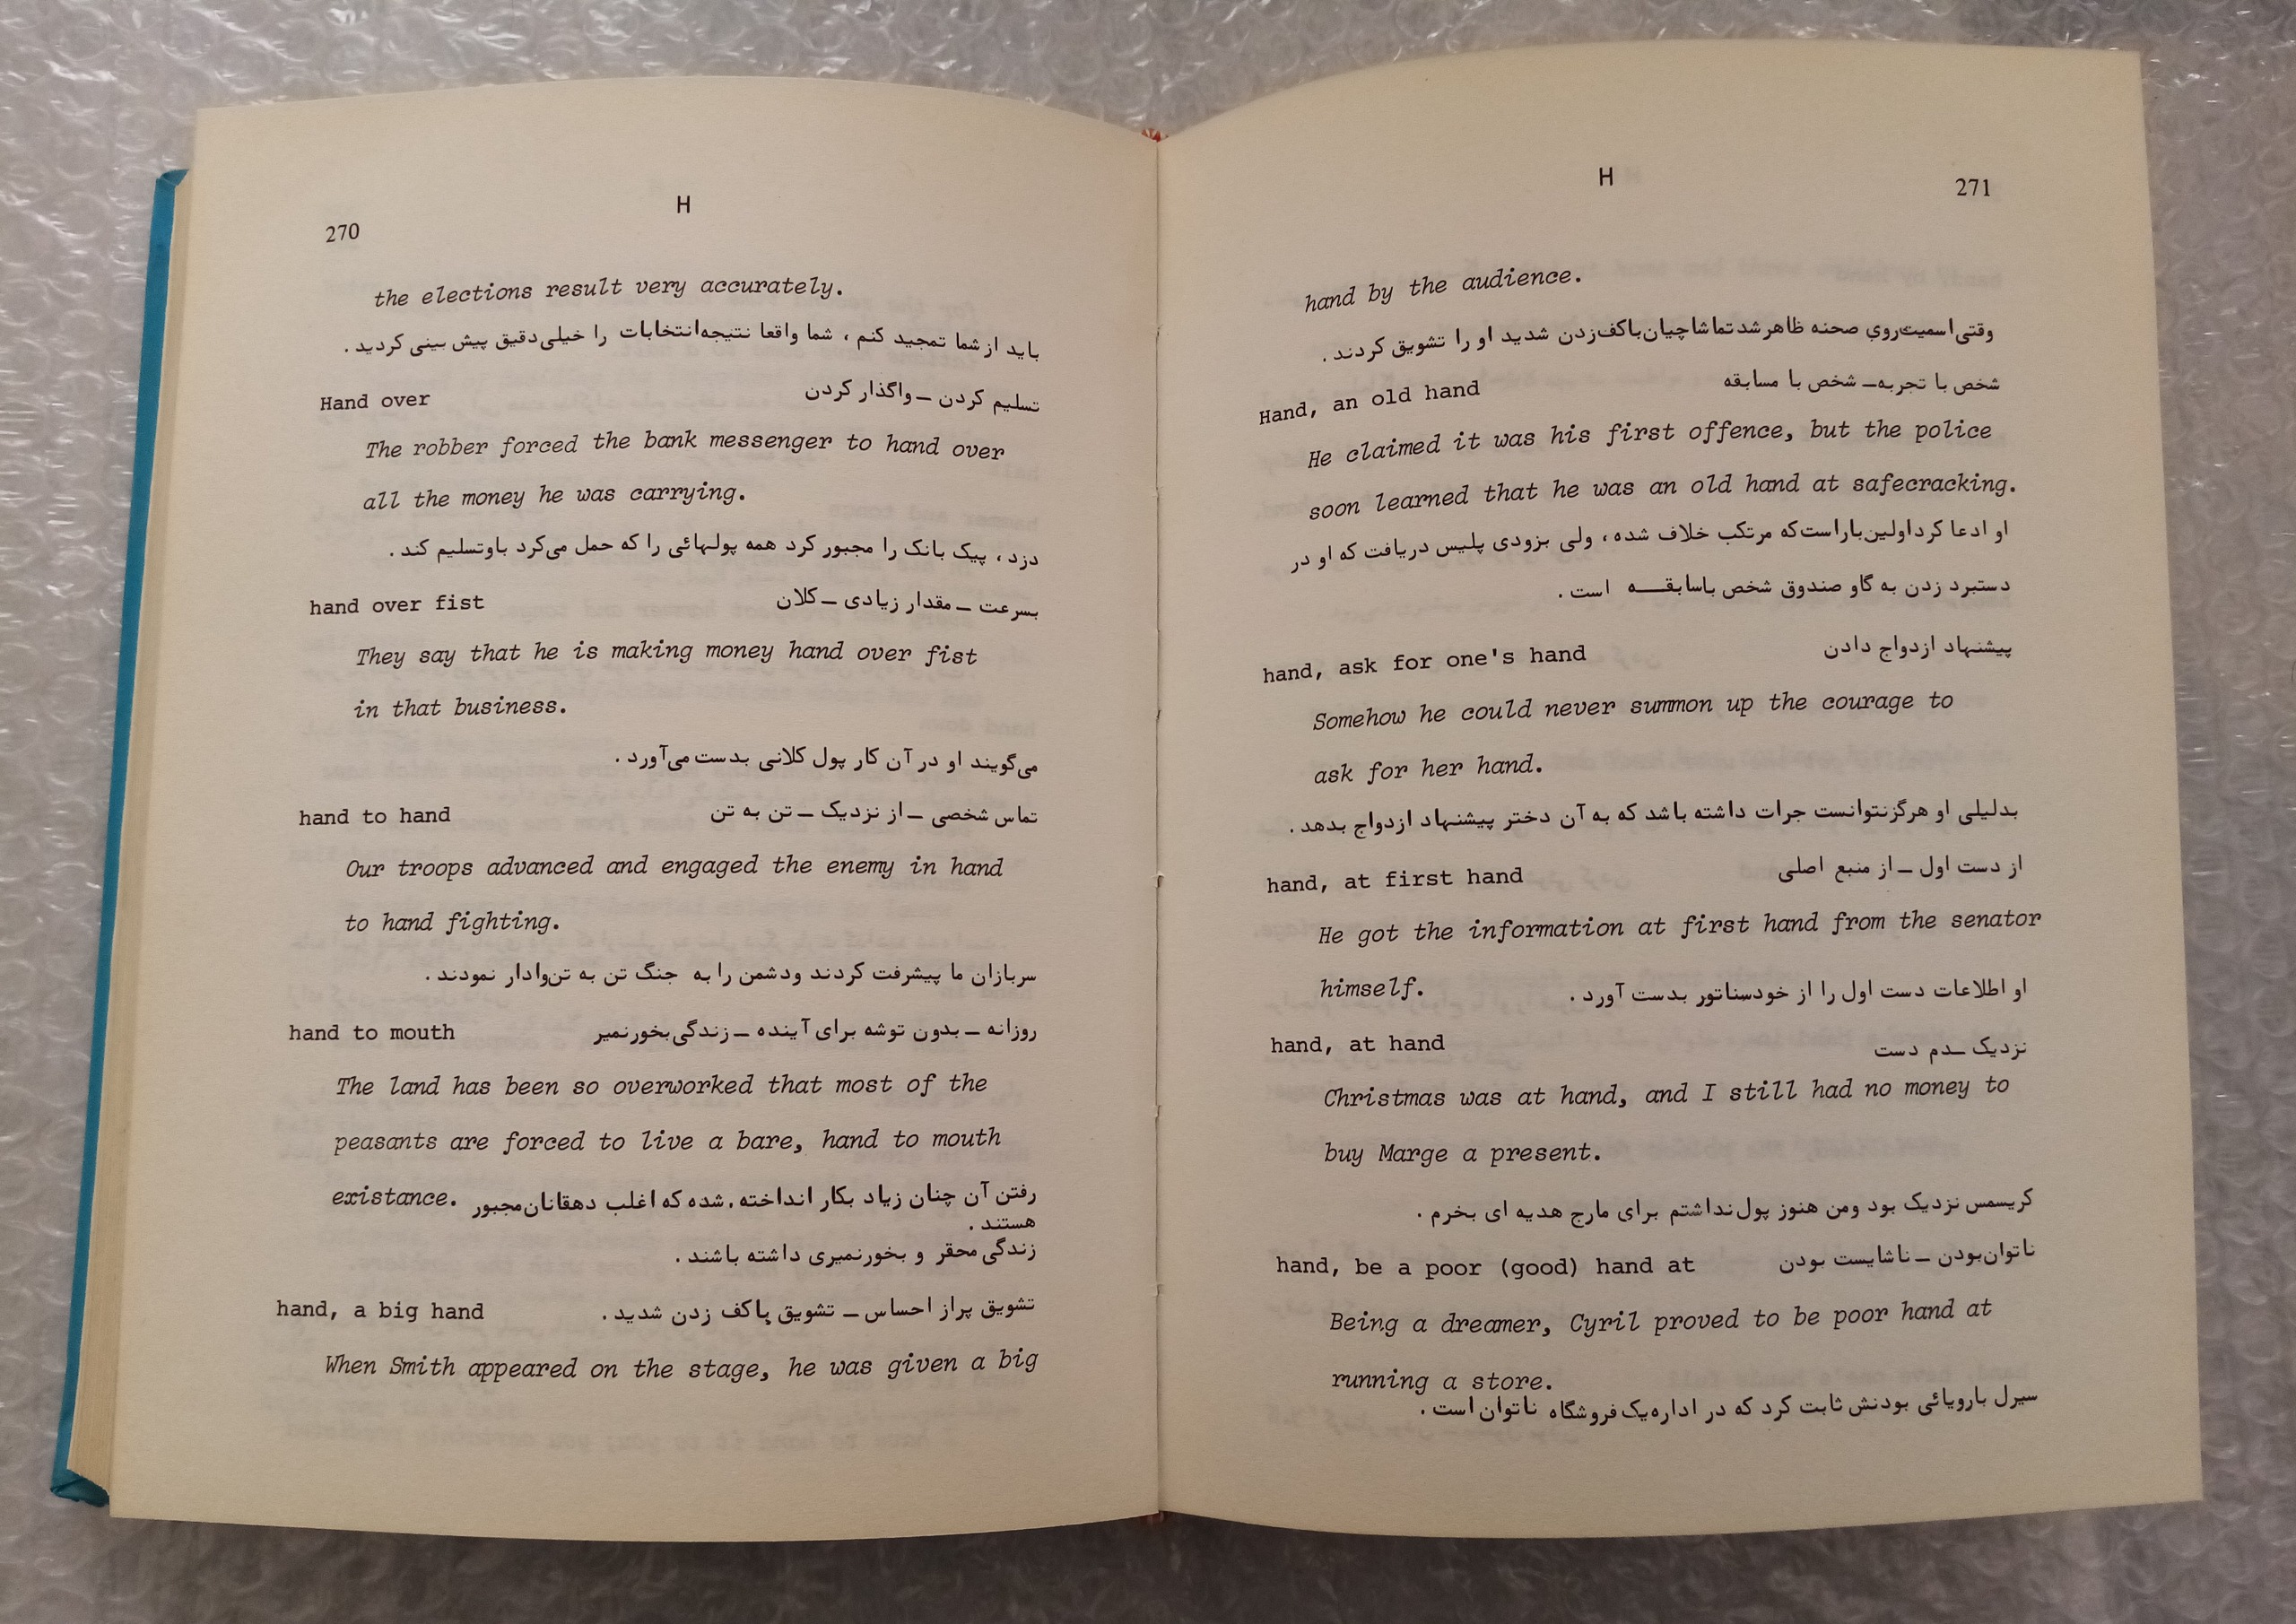 270
H
the elections result very accurately.
باید از شما تمجید کنم ، شما واقعا نتیجه انتخابات را خیلی دقیق پیش بینی کردید .
Hand over تسلیم کردن ــ واگذار کردن
The robber forced the bank messenger to hand over
all the money he was carrying.
دزد ، پیک بانک را مجبور کرد همه پولهائی را که حمل می‌کرد باوتسلیم کند .
hand over fist بسرعت ــ مقدار زیادی ــ کلان
They say that he is making money hand over fist
in that business.
می‌گویند او در آن کار پول کلانی بدست می‌آورد .
hand to hand تماس شخصی ــ از نزدیک ــ تن به تن
Our troops advanced and engaged the enemy in hand
to hand fighting.
سربازان ما پیشرفت کردند ودشمن را به جنگ تن به تن‌وادار نمودند .
hand to mouth روزانه ــ بدون توشه برای آینده ــ زندگی بخورنمیر
The land has been so overworked that most of the
peasants are forced to live a bare, hand to mouth
existance. رفتن آن چنان زیاد بکار انداخته، شده که اغلب دهقانان مجبور
هستند .
زندگی محقر و بخورنمیری داشته باشند .
hand, a big hand تشویق پراز احساس ــ تشویق پاکف زدن شدید .
When Smith appeared on the stage, he was given a big
H
271
hand by the audience.
وقتی اسمیت روی صحنه ظاهر شد تماشاچیان باکف زدن شدید او را تشویق کردند .
Hand, an old hand شخص با تجربه ــ شخص با مسابقه
He claimed it was his first offence, but the police
soon learned that he was an old hand at safecracking.
او ادعا کرد اولین بار است که مرتکب خلاف شده ، ولی بزودی پلیس دریافت که او در
دستبرد زدن به گاو صندوق شخص باسابقـــه است .
hand, ask for one's hand پیشنهاد ازدواج دادن
Somehow he could never summon up the courage to
ask for her hand.
بدلیلی او هرگزنتوانست جرات داشته باشد که به آن دختر پیشنهاد ازدواج بدهد .
hand, at first hand از دست اول ــ از منبع اصلی
He got the information at first hand from the senator
himself. او اطلاعات دست اول را از خودسناتور بدست آورد .
hand, at hand نزدیک ــ دم دست
Christmas was at hand, and I still had no money to
buy Marge a present.
کریسمس نزدیک بود ومن هنوز پول نداشتم برای مارج هدیه ای بخرم .
hand, be a poor (good) hand at ناتوان بودن ــ ناشایست بودن
Being a dreamer, Cyril proved to be poor hand at
running a store.
سیرل بارویائی بودنش ثابت کرد که در اداره یک فروشگاه ناتوان است .